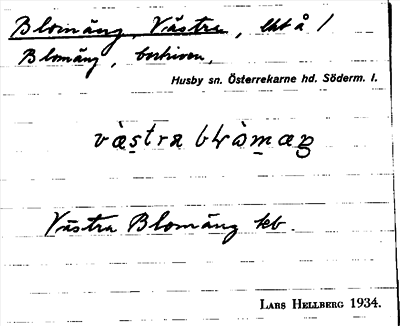 Blomäng, Västra, lht å 1
Blomäng, bortriven,
Husby sn. Österrekarne hd. Söderm. l.
Västra Blomäng kb.
LARS HELLBERG 1934.